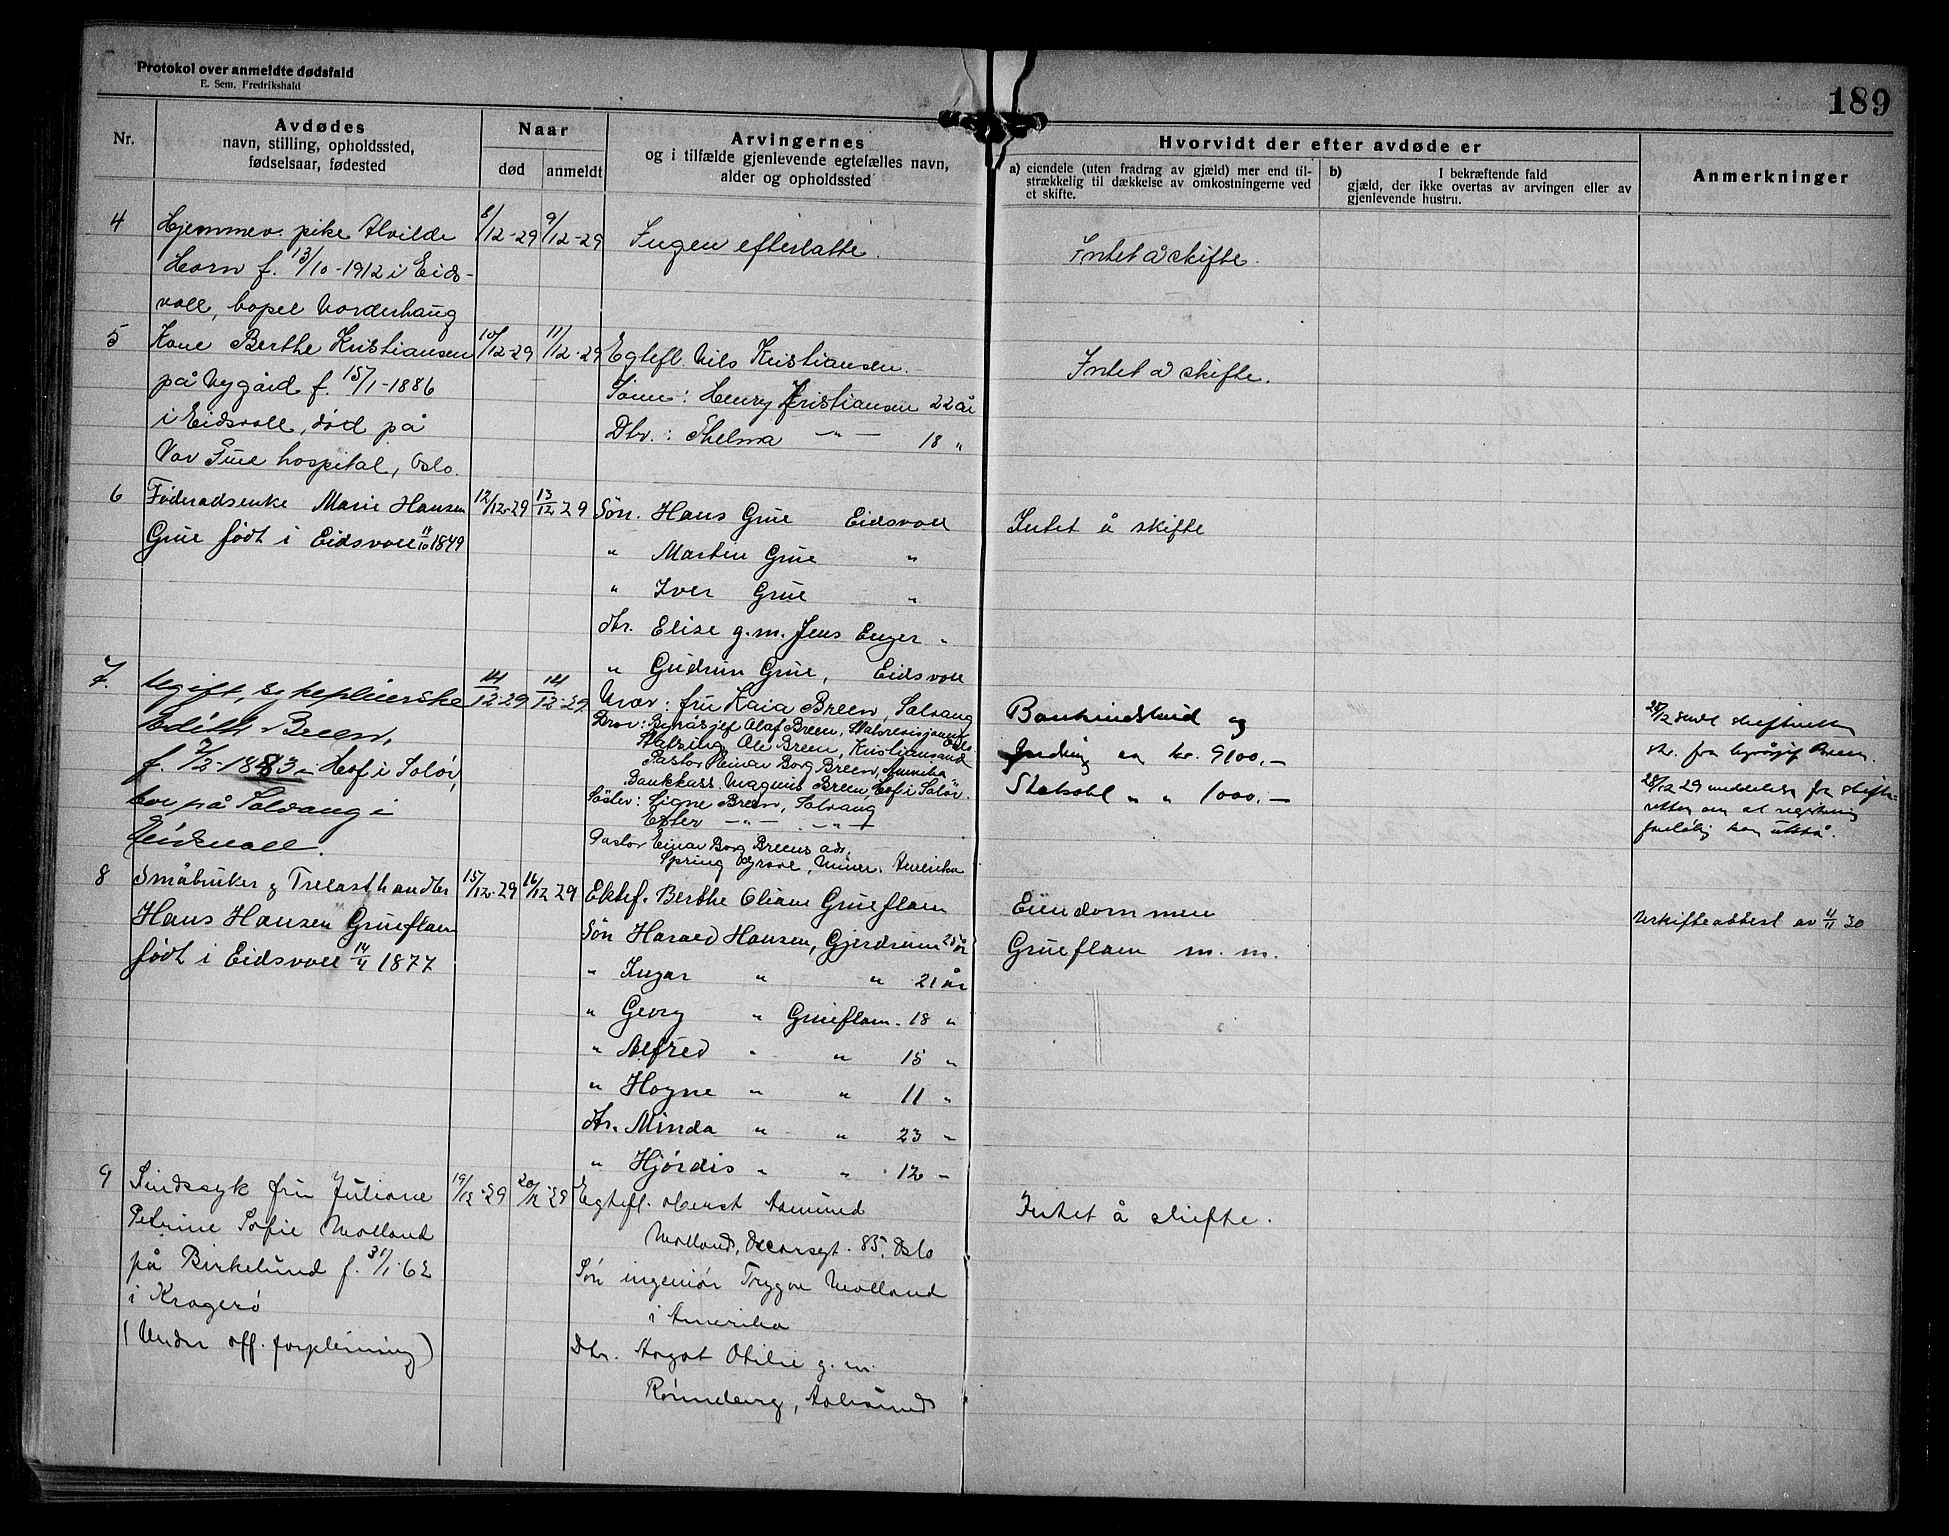 Protokol over anmeldte dødsfald
E. Sem, Fredrikshald
189
Nr.
Avdødes
navn, stilling, opholdssted,
fødselsaar, fødested
Naar
død
anmeldt
Arvingernes
og i tilfælde gjenlevende egtefælles navn,
alder og opholdssted
Hvorvidt der efter avdøde er
a) eiendele (uten fradrag av gjæld) mer end til-
strækkelig til dækkelse av omkostningerne ved
et skifte.
b) I bekræftende fald
gjæld, der ikke overtas av arvingen eller av
gjenlevende hustru.
Anmerkninger
4 Hjemmev. pike Alvilde 8/12-29 9/12-29 Ingen efterlatte. Intet å skifte.
Horn f. 13/10-1912 i Eids-
voll, bopel Norderhaug
5 Kone Berthe Kristiansen 10/12-29 11/12-29 Egtefl. Nils Kristiansen. Intet å skifte.
på Nygård f. 15/1-1886 Sønn: Henry Kristiansen 22 år
i Eidsvoll, død på Dtr.: Thelma -"- 18 "
Vor Frue hospital, Oslo.
6 Føderadsenke Marie Hansen 12/12-29 13/12 29 Søn. Hans Grue Eidsvoll Intet å skifte
Grue født i Eidsvoll 11/10 1849 " Martin Grue "
" Iver Grue "
dtr. Elise g.m. Jens Enger "
" Gudrun Grue, Eidsvoll
7. Ugift, sykepleierske 14/12-29 14/12-29 Mor: fru Kaia Breen, Solvang
Edith Breen, Bror: Byråsjef Olaf Breen, Statsrevisjonen Oslo
f. 7/2-1883 i Hof i Solør, Ole Breen, Kristiansand
bor på Solvang i Pastor Einar Borg Breen, Amerika
Eidsvoll. Bankkass. Magnus Breen, Hof i Solør.
Søster: Signe Breen, Solvang
Ester -"- -"-
Pastor Einar Borg Breens adr.
Spring Grove, Minn. Amerika
Bankindskud og
ca kr. 9100,-
" " 1000,-
28/12 sendt skifteretten
skr. fra byråsjef Breen.
28/12 29 meddelelse fra skifte-
retten om at registrering
foreløbig kan utstå.
8 Småbruker & Trelasthandler 15/12-29 16/12 29 Ektef. Berthe Oliane Grueflam Eiendommen Uskifteattest av 4/11 30
Hans Hansen Grueflam Søn Harald Hansen, Gjerdrum 25 år Grueflam m. m.
født i Eidsvoll 14/4 1877 " Ingar " " 21 år
" Georg " Grueflam. 18 "
" Alfred " " 15 "
" Hogne " " 11 "
dtr. Minda " " 23 "
" Hjørdis " " 12 "
9 Sindssyk fru Juliane 19/12-29 20/12-29 Egtefl. oberst Aamund Intet å skifte.
Petrine Sofie Molland Molland, Oscarsgt. 85, Oslo
på Birkelund f. 31/1-62 Søn ingeniør Trygve Molland
i Kragerø i Amerika
(Under off. forpleining) Dtr. Aagot Otilie g.m.
Rønneberg, Aalesund